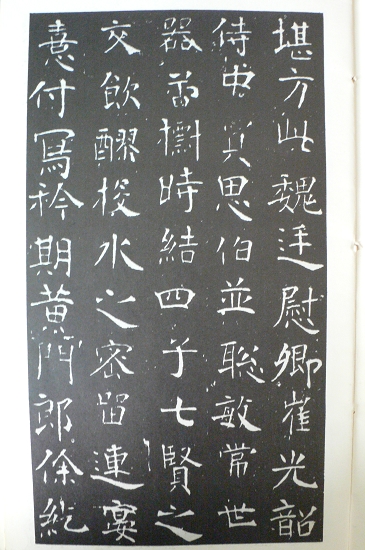 堪方此魏廷尉卿崔光韶
侍中賈思伯並聡敏常世
器樹時結四子七賢之
交飲醪投水之密留連宴
憙付寫衿期黄門郎徐紇